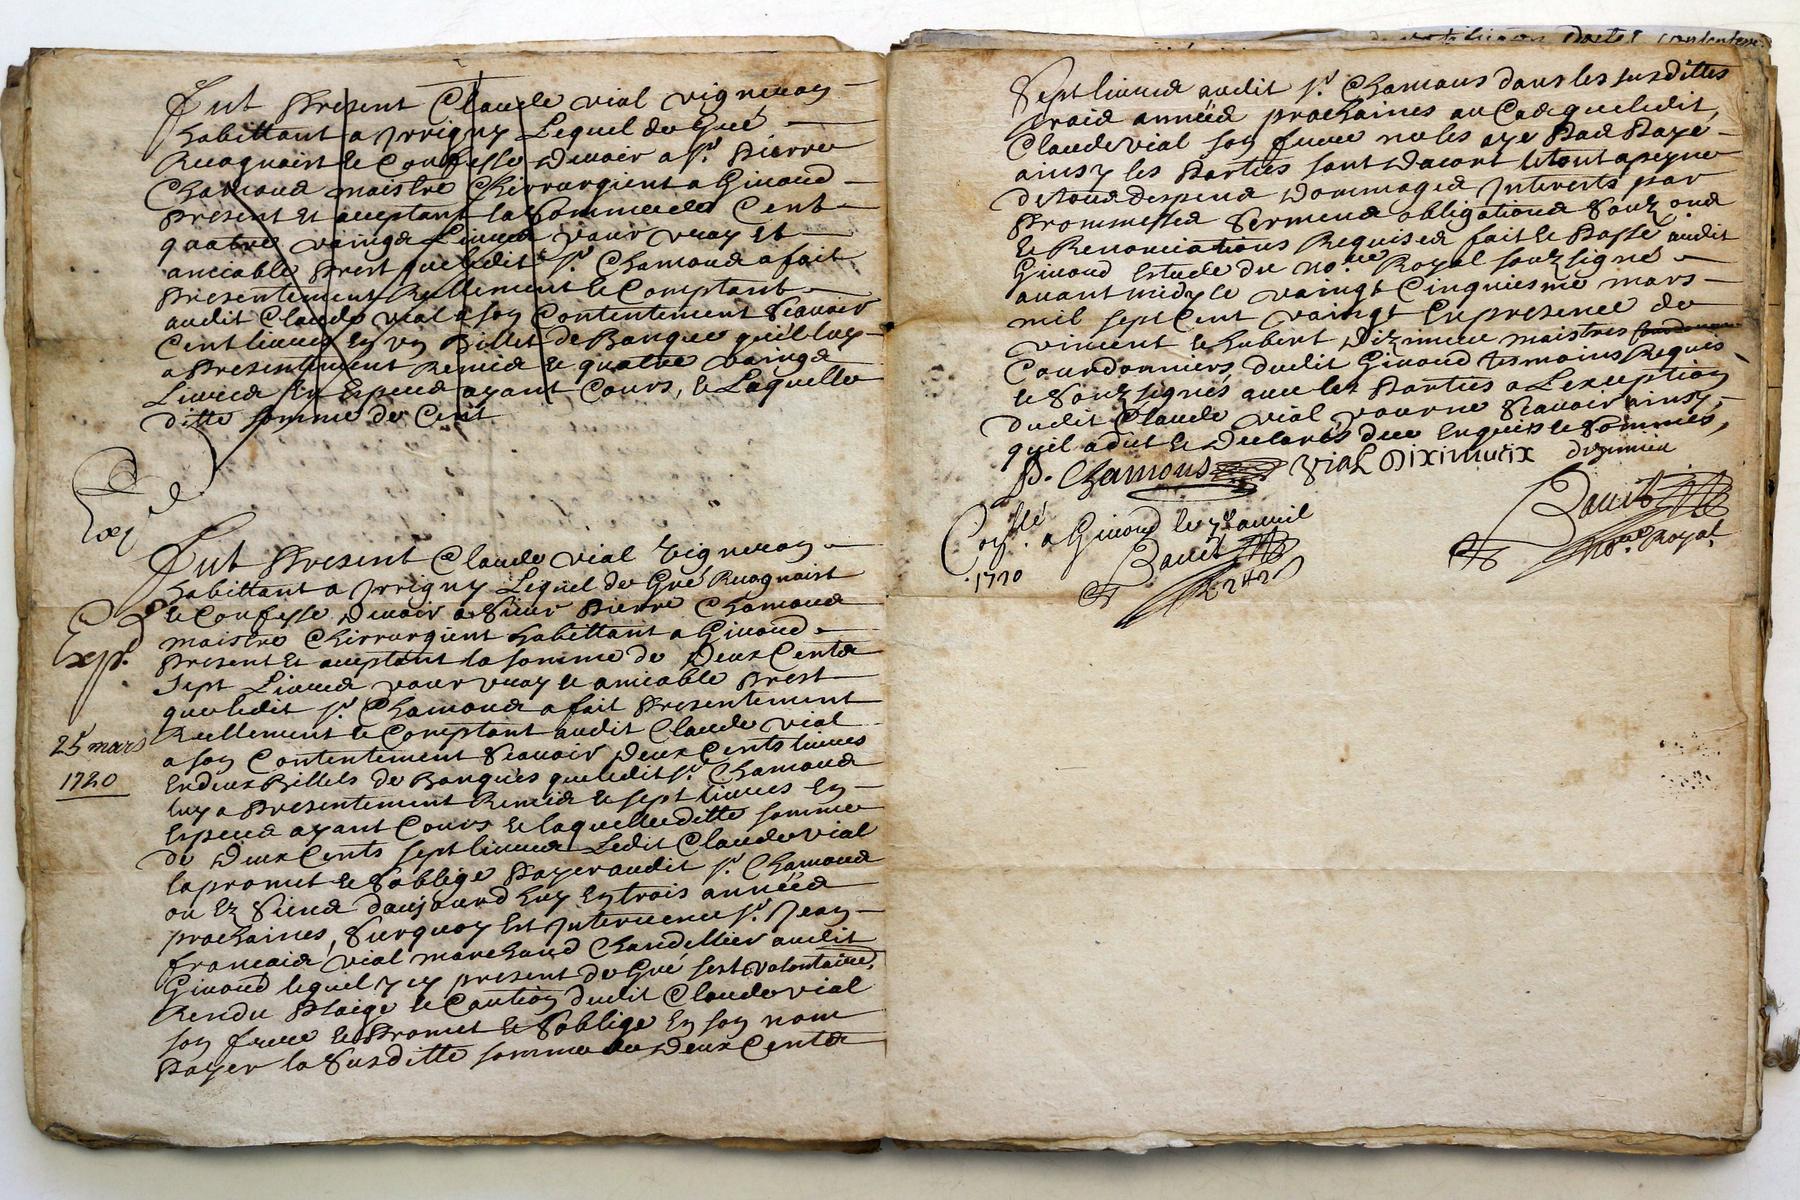 Fut Present Claude vial vigneron
habittant a Jrrigny Lequel de Gré
Recognoist et Confesse devoir a Sr. Pierre
Chamous maistre Chirrurgient a Givord
Present et aceptant la Somme de Cent
quatre vaings Livres pour vray et
amciable Prest que ledit Sr. Chamous a fait
Presentement Reellement et Comptant
audit Claude vial a son Contentement Scavoir
Cent livres En un Billet de Banque quil luy
a Presentement Remis et quatre vaings
Livres En Espences ayant Cours, et Laquelle
ditte somme de Cent
Expé
Fut Present Claude vial vigneron
habittant a Jrrigny Lequel de Gré Recognoist
et Confesse devoir a Sieur Pierre Chamous
maistre Chirrurgient habittant a Givord
Present et aceptant la somme de Deux Cents
Sept Livres pour vray et amciable Prest
que ledit Sr. Chamous a fait Presentement
Reellement et Comptant audit Claude vial
a son Contentement Scavoir Deux Cents livres
En deux Billets de Banques que ledit Sr. Chamous
luy a Presentement Remis et sept livres En
Espences ayant Cours et laquelle ditte somme
de Deux Cents sept livres Ledit Claude vial
la promet et Soblige Payer audit Sr. Chamous
ou Ez Siens daujourdhuy En trois années
prochaines, Surquoy Est Intervenu Sr. Jean
francois vial marchand Chandellier audit
Givord lequel y cy present de Gré sest volontaire.
Rendu Plaige et Caution dudit Claude vial
son frere et Promet et Soblige En son nom
Payer la Susditte somme de Deux Cents
Expé.
25 mars
1720
Sept livres audit Sr. Chamous dans les susdittes
trois années prochaines au Cas que ledit
Claude vial son frere ne les aye Pas Payé
ainsy les Parties sont Dacort le tout a peyne
de tous despens Dommages Interests par
Prommesses Sermens obligations Soubz ons
et Renonciations Requises fait et Passé audit
Givord Estude du nore. Royal soubzsigné
avant midy le vaingt Cinquiesme mars
mil sept Cent vaingt En presence de
vincent et hubert Dizimieu maistres
Courdonniers dudit Givord tesmoins Requis
et Soubzsignés avec les Parties a Lexeption
dudit Claude vial pour ne Scavoir ainsy
quil a dit et Declaré de ce Enquis et Sommés,
P. Chamous vial Diximieix dizimieu
Bavit
nore. Royal
Conllé. a Givord le 7e avril
1720 Bavit